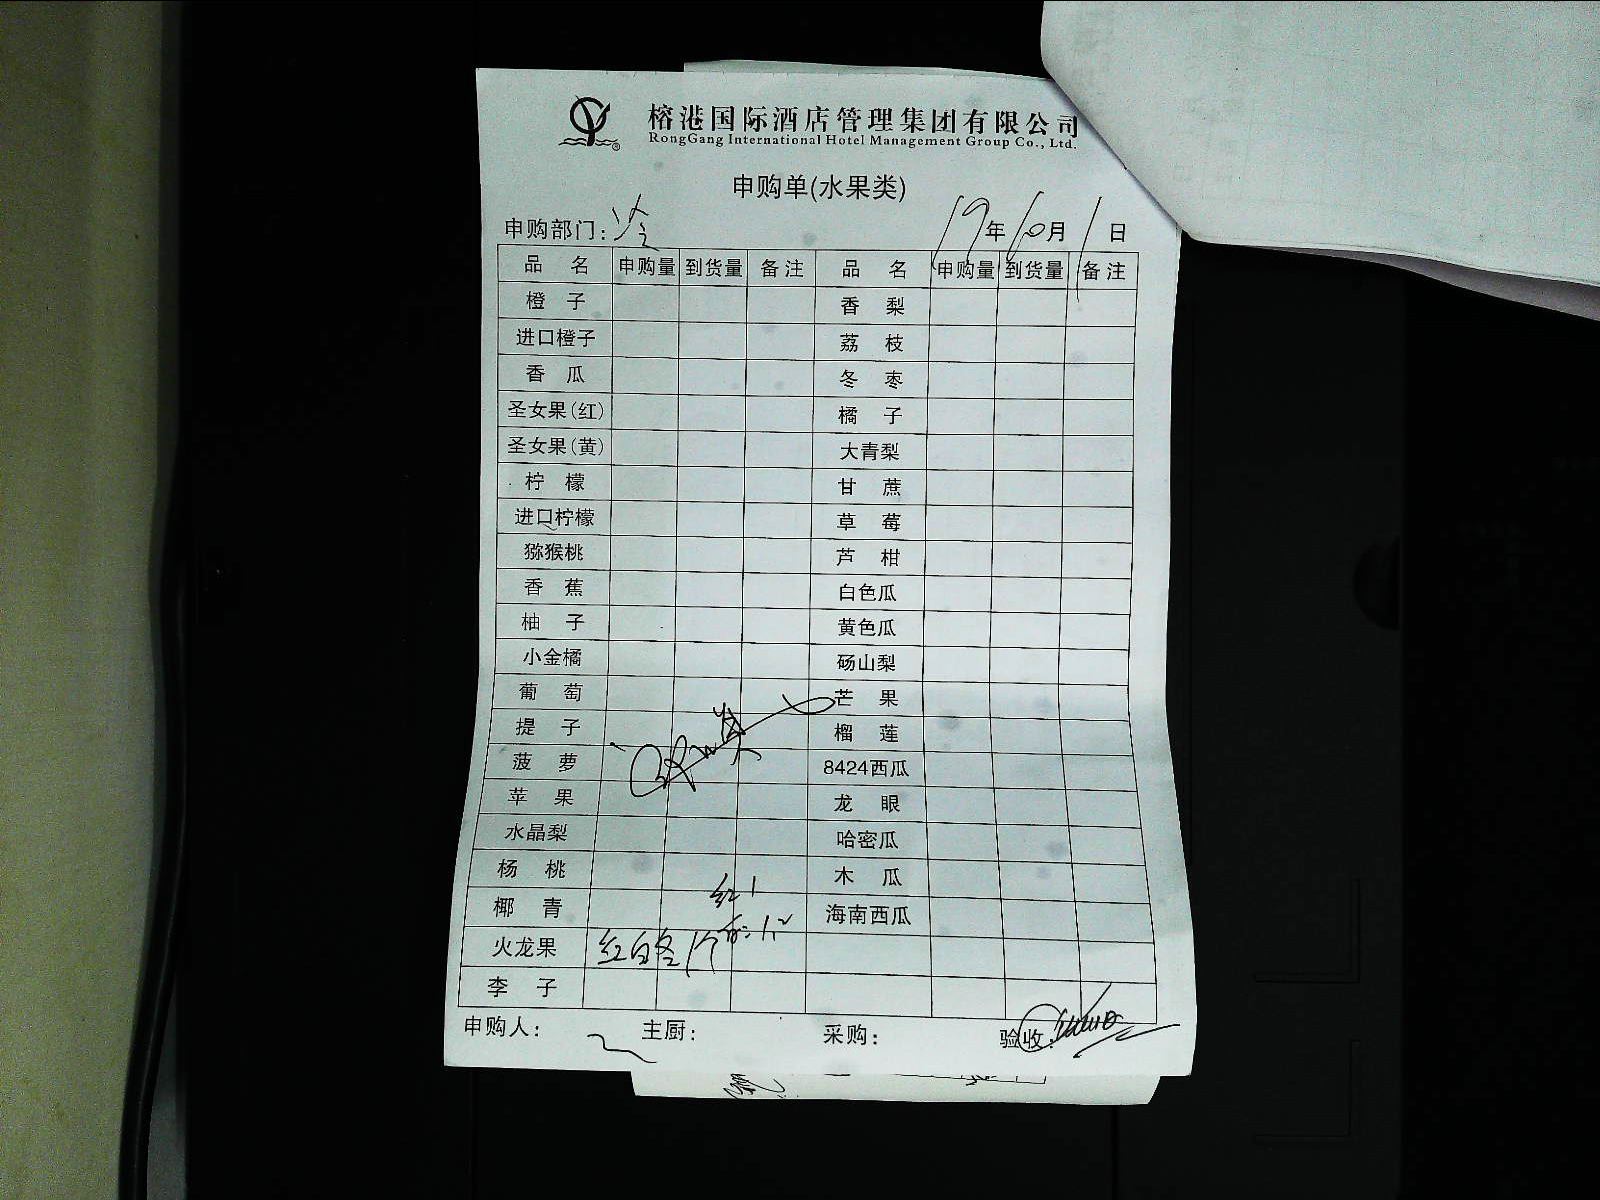 榕港国际酒店管理集团有限公司
RongGang International Hotel Management Group Co., Ltd.
申购单(水果类)
申购部门: 冷 19年10月1日
品名 申购量 到货量 备注 品名 申购量 到货量 备注
橙子 香梨
进口橙子 荔枝
香瓜 冬枣
圣女果(红) 橘子
圣女果(黄) 大青梨
柠檬 甘蔗
进口柠檬 草莓
猕猴桃 芦柑
香蕉 白色瓜
柚子 黄色瓜
小金橘 砀山梨
葡萄 芒果
提子 榴莲
菠萝 8424西瓜
苹果 龙眼
水晶梨 哈密瓜
杨桃 木瓜
红1
椰青 海南西瓜
火龙果 红白各1个
李子
申购人: 主厨: 采购: 验收: